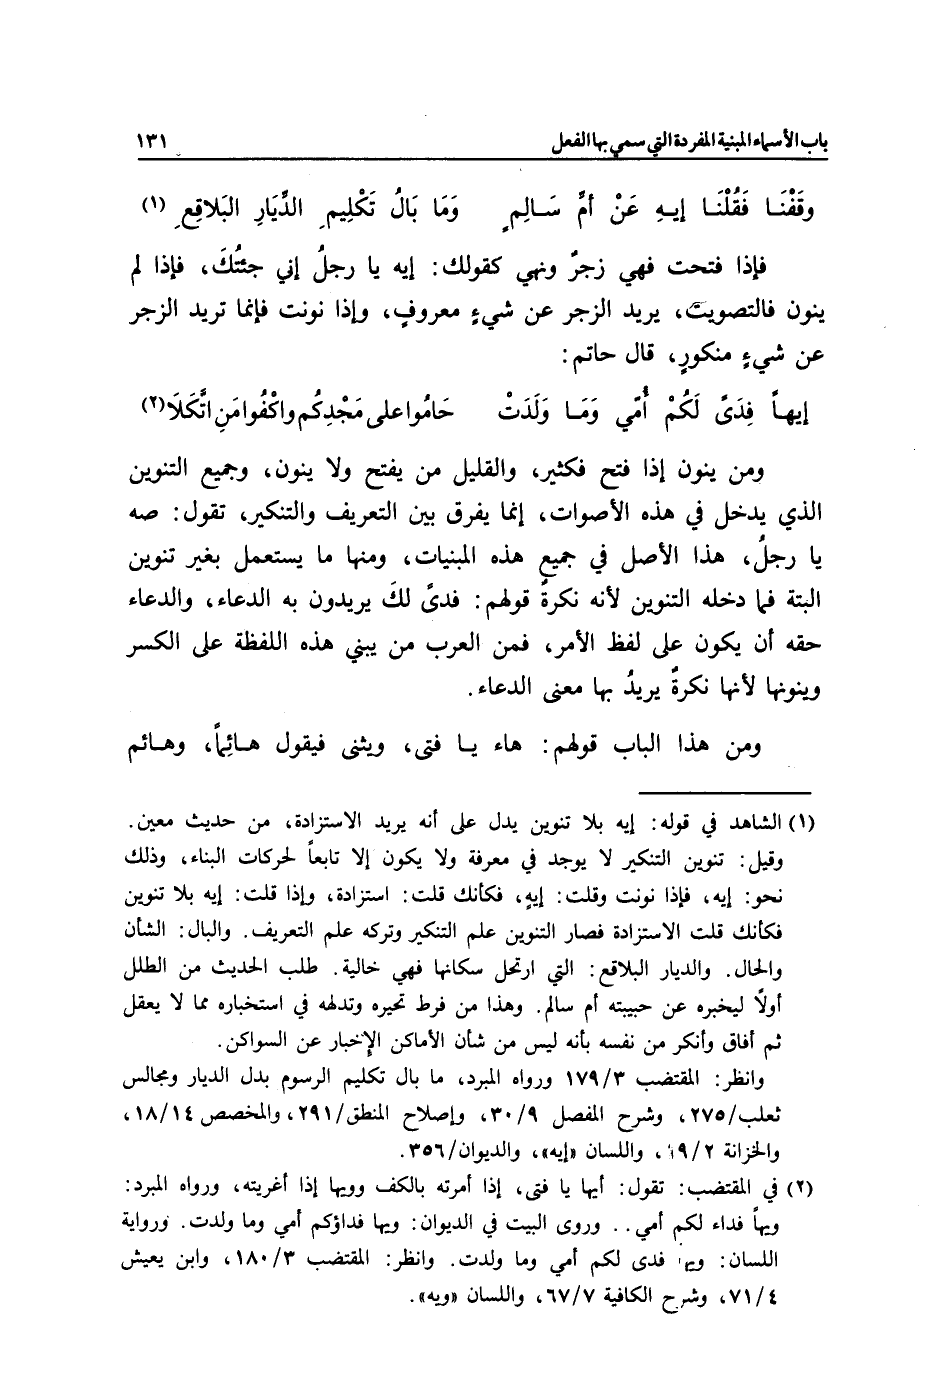 باب الأسماء المبنية المفردة التي سمي بها الفعل ١٣١
وَقَفْنَا فَقُلْنَا إيهِ عَنْ أمِّ سَالِمٍ وَمَا بَالُ تَكْلِيمِ الدِّيَارِ البَلاقِعِ (١)
فإذا فتحت فهي زجرٌ ونهي كقولك: إيه يا رجلُ إني جئتُكَ، فإذا لم
ينون فالتصويت، يريد الزجر عن شيءٍ معروفٍ، وإذا نونت فإنما تريد الزجر
عن شيءٍ منكورٍ، قال حاتم:
إيهاً فِدَىً لَكُمْ أُمّي وَمَا وَلَدَتْ حَامُوا على مَجْدِكُم واكْفُوا مَنِ اتَّكَلَا (٢)
ومن ينون إذا فتح فكثير، والقليل من يفتح ولا ينون، وجميع التنوين
الذي يدخل في هذه الأصوات، إنما يفرق بين التعريف والتنكير، تقول: صه
يا رجلُ، هذا الأصل في جميعِ هذه المبنيات، ومنها ما يستعمل بغير تنوين
البتة فما دخله التنوين لأنه نكرةٌ قولهم: فدىً لكَ يريدون به الدعاء، والدعاء
حقه أن يكون على لفظ الأمر، فمن العرب من يبني هذه اللفظة على الكسر
وينونها لأنها نكرةٌ يريدُ بها معنى الدعاء.
ومن هذا الباب قولهم: هاء يا فتى، ويثنى فيقول هائِماً، وهائم
(١) الشاهد في قوله: إيه بلا تنوين يدل على أنه يريد الاستزادة، من حديث معين.
وقيل: تنوين التنكير لا يوجد في معرفة ولا يكون إلا تابعاً لحركات البناء، وذلك
نحو: إيه، فإذا نونت وقلت: إيهٍ، فكأنك قلت: استزادة، وإذا قلت: إيه بلا تنوين
فكأنك قلت الاستزادة فصار التنوين علم التنكير وتركه علم التعريف. والبال: الشأن
والحال. والديار البلاقع: التي ارتحل سكانها فهي خالية. طلب الحديث من الطلل
أولاً ليخبره عن حبيبته أم سالم. وهذا من فرط تحيره وتدلهه في استخباره مما لا يعقل
ثم أفاق وأنكر من نفسه بأنه ليس من شأن الأماكن الإخبار عن السواكن.
وانظر: المقتضب ١٧٩/٣ ورواه المبرد، ما بال تكليم الرسوم بدل الديار ومجالس
ثعلب/٢٧٥، وشرح المفصل ٣٠/٩، وإصلاح المنطق/٢٩١، والمخصص ١٨/١٤،
والخزانة ١٩/٢، واللسان «إيه»، والديوان/٣٥٦.
(٢) في المقتضب: تقول: أيها يا فتى، إذا أمرته بالكف وويها إذا أغريته، ورواه المبرد:
ويهاً فداء لكم أمي.. وروى البيت في الديوان: ويها فداؤكم أمي وما ولدت. ورواية
اللسان: ويها فدى لكم أمي وما ولدت. وانظر: المقتضب ١٨٠/٣، وابن يعيش
٧١/٤، وشرح الكافية ٦٧/٧، واللسان «ويه».